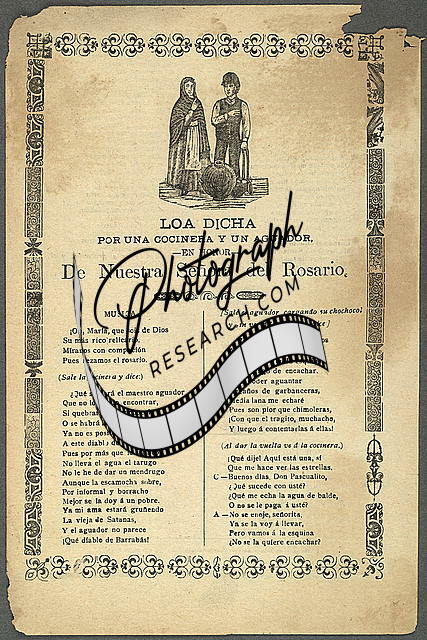 LOA DICHA
POR UNA COCINERA Y UN AGUADOR,
EN HONOR
De Nuestra Señora del Rosario.
Photograph
RESEARCH.COM
MUSICA
¡O, María, que sois de Dios
Su más rico relicario,
Míranos con compasión
Pues rezamos el rosario.
(Sale la cocinera y dice:)
¿Qué será el maestro aguador
Que no lo encontrar,
Si quebra
O se habrá
Ya no es posi
A este diablo
Pues por más que
No lleva el agua el tarugo
No le he de dar un mendrugo
Aunque la escamocha sobre,
Por informal y borracho
Mejor se la doy á un pobre.
Ya mi ama estará gruñendo
La vieja de Satanas,
Y el aguador no parece
¡Qué diablo de Barrabás!
(Sale el aguador cargando su chochocol
de encachar.
poder aguantar
años de garbanceras,
media lana me echaré
Pues son pior que chimoleras,
¡Con que el tragito, muchacho,
Y luego á contentarlas á ellas!
(Al dar la vuelta ve á la cocinera.)
¡Qué dije! Aquí está una, sí
Que me hace ver las estrellas.
C—Buenos días, Don Pascualito,
¿Qué sucede con usté?
¿Qué me echa el agua de balde,
O no se le paga á usté?
A—No se enoje, señorita,
Ya se la voy á llevar,
Pero vamos á la esquina
¿No se la quiere encachar?